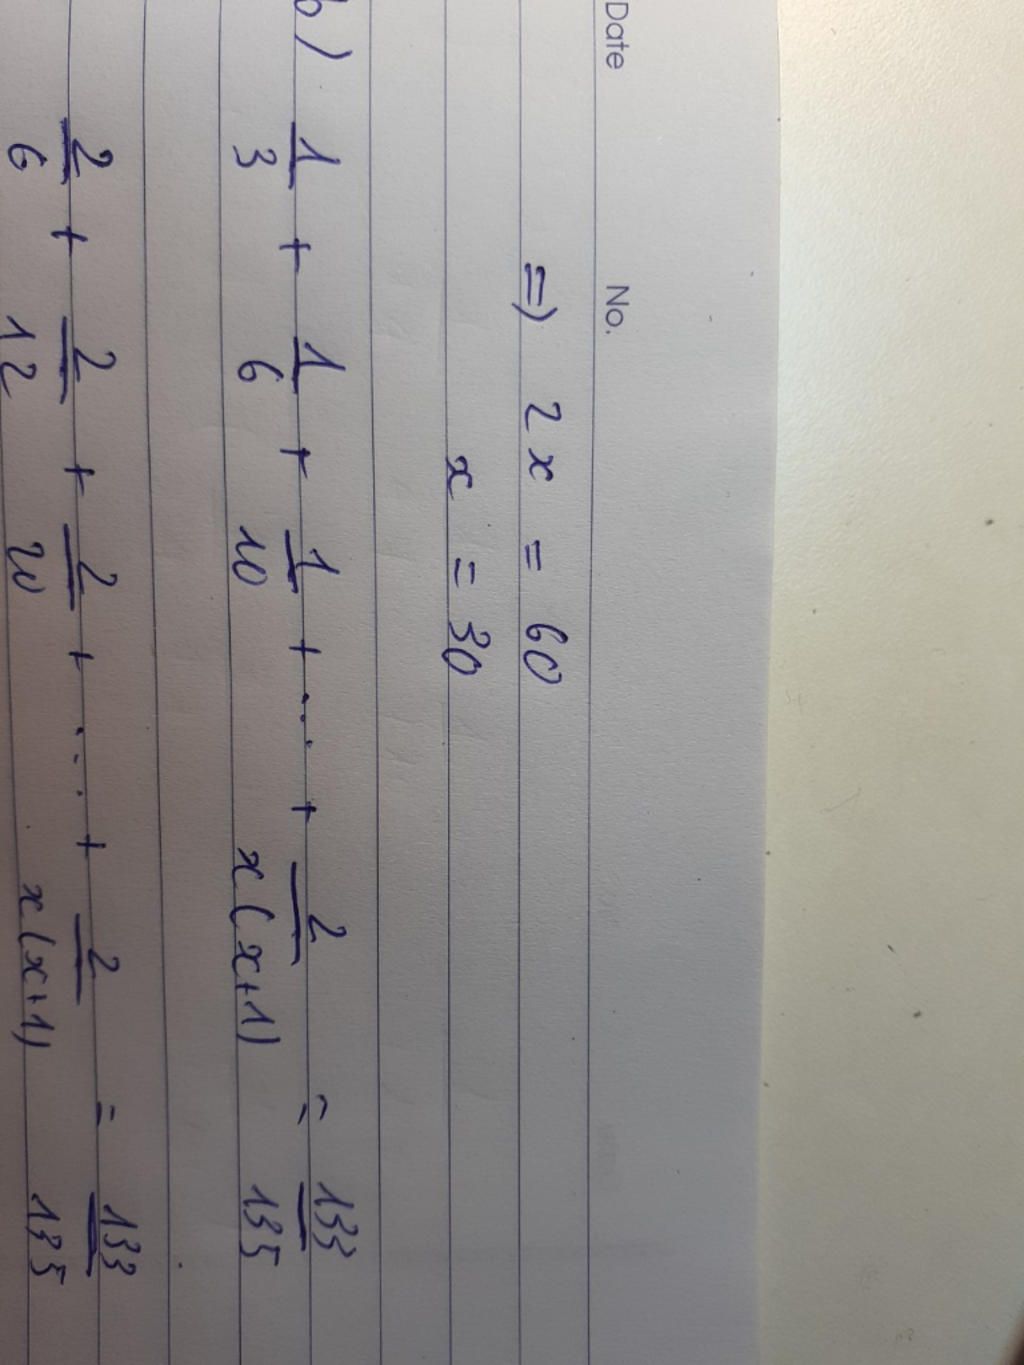 Date No.
=> 2x = 60
x = 30
b) 1/3 + 1/6 + 1/10 + ... + 2/x(x+1) = 133/135
2/6 + 2/12 + 2/20 + ... + 2/x(x+1) = 133/135